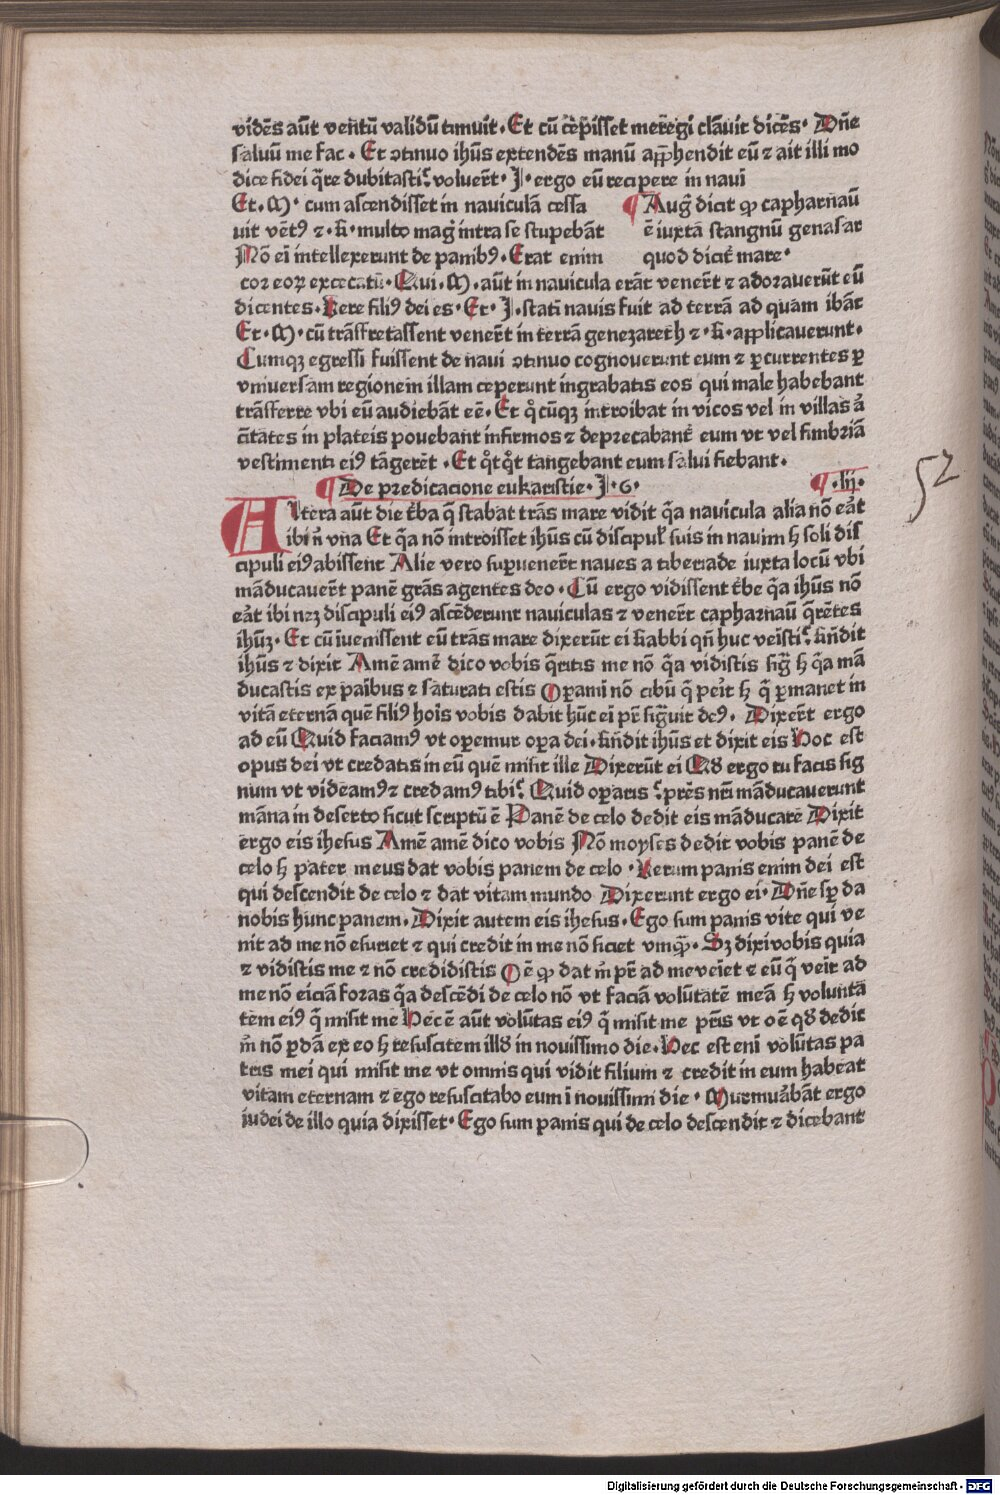 vidēs aūt ventū validū timuit. Et cū cēpisset mergi clāvit dicēs. Dn̄e
salvū me fac. Et ɔtinuo ihūs extendēs manū app̄hendit eū ⁊ ait illi mo
dice fidei q̄re dubitasti? voluer̄t. J. ergo eū recipere in navī
Et. M. cum ascendisset in naviculā cessa
vit vētꝰ ⁊. R. multo mag̅ intra se stupebāt
Nō eī intellexerunt de panibꝰ. Erat enim
¶ Aug̅ dicit ꝙ capharnaū
ē iuxtā stangnū genasar
quod dicit̄ mare.
cor eoꝝ excecatū. Qui. M. aūt in navicula erāt vener̄t ⁊ adoraverūt eū
dicentes. Vere filiꝰ dei es. Et. J. statī navis fuit ad terrā ad quam ibāt
Et. M. cū trāsfretassent vener̄t in terrā genezareth ⁊. R. applicaverunt.
Cumqꝫ egressi fuissent de navi ɔtinuo cognoverunt eum ⁊ ꝑcurrentes ꝑ
vniversam regionem illam ceperunt in grabatis eos qui male habebant
trāsferre vbi eū audiebāt eē. Et q̊cūqꝫ introibat in vicos vel in villas āt
cītates in plateis ponebant infirmos ⁊ deprecabant̄ eum vt vel fimbriā
vestimenti eiꝰ tāgerēt. Et q̊tq̊t tangebant eum salvi fiebant.
¶ De predicacione eukaristie. J. 6. ¶ . lij.
52
Altera aūt die t̄ba q̄ stabat trās mare vidit q̄a navicula alia nō eāt
ibi n̄ vna Et q̄a nō introisset ihūs cū discipul̄ suis in navim ꜧ soli dis
cipuli eiꝰ abissent Alie vero suꝑvener̄t naves a tiberiade iuxta locū vbi
māducaver̄t panē grās agentes deo. Cū ergo vidissent t̄be q̄a ihūs nō
eāt ibi neꝫ discipuli eiꝰ ascēderunt naviculas ⁊ vener̄t capharnaū q̄rētes
ihūꝫ. Et cū īuenissent eū trās mare dixerūt ei Rabbi qn̄ huc venīsti? Rn̄dit
ihūs ⁊ dixit Amē amē dico vobis q̄ritis me nō q̄a vidistis sig̅ ꜧ q̄a mā
ducastis ex panibus ⁊ saturati estis Oꝑamī nō cibū q̄ peīt ꜧ q̄ ꝑmanet in
vitā eternā quē filiꝰ hoīs vobis dabit hūc eī pr̄ sig̅vit deꝰ. Dixer̄t ergo
ad eū Quid faciamꝰ vt oꝑemur oꝑa dei. Rn̄dit ihūs et dixit eis Hoc est
opus dei vt credatis in eū quē misit ille Dixerūt ei Qd̄ ergo tu facis sig
num vt videamꝰ ⁊ credamꝰ tibi? Quid oꝑaris? pr̄es nr̄i māducaverunt
māna in deserto sicut scriptū ē Panē de celo dedit eis māducarē Dixit
ergo eis ihesus Amē amē dico vobis Nō moyses dedit vobis panē de
celo ꜧ pater meus dat vobis panem de celo. Verum panis enim dei est
qui descendit de celo ⁊ dat vitam mundo Dixerunt ergo ei. Dn̄e sꝑ da
nobis hunc panem. Dixit autem eis ihesus. Ego sum panis vite qui ve
nit ad me nō esuriet ⁊ qui credit in me nō siciet vmꝙ. Sꝫ dixi vobis quia
⁊ vidistis me ⁊ nō credidistis Oē ꝙ dat m̄ pr̄ ad me venīet ⁊ eū q̄ venīt ad
me nō eiciā foras q̄a descēdi de celo nō vt faciā volūtatē meā ꜧ voluntā
tem eiꝰ q̄ misit me Hec ē aūt volūtas eiꝰ q̄ misit me pr̄is vt oē qd̄ dedit
m̄ nō ꝑdā ex eo ꜧ resuscitem illd̄ in novissimo die. Hec est enī volūtas pa
tris mei qui misit me vt omnis qui vidit filium ⁊ credit in eum habeat
vitam eternam ⁊ ego resuscitabo eum ī novissimi die. Murmurābāt ergo
iudei de illo quia dixisset. Ego sum panis qui de celo descendit ⁊ dicebant
Digitalisierung gefördert durch die Deutsche Forschungsgemeinschaft - DFG